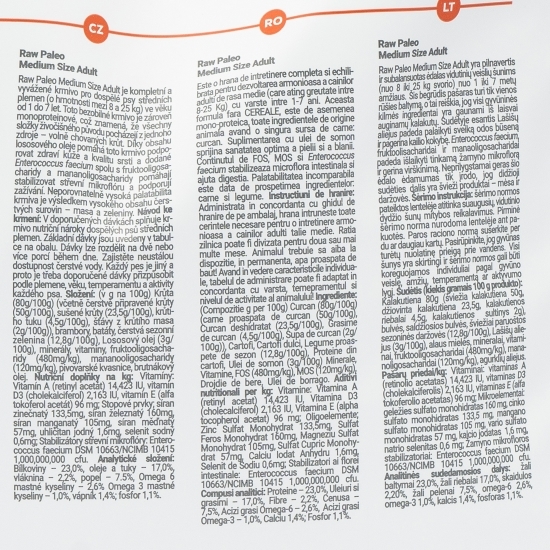 CZ
Raw Paleo
Medium Size Adult
Raw Paleo Medium Size Adult je kompletní a
vyvážené krmivo pro dospělé psy středních
plemen (o hmotnosti mezi 8 a 25 kg) ve věku
od 1 do 7 let. Toto bezobilné krmivo je zároveň
monoproteinové, což znamená, že všechny
složky živočišného původu pocházejí z jednoho
zdroje – volně chovaných krůt. Díky obsahu
lososového oleje pomáhá toto krmivo podpo-
rovat zdraví kůže a kvalitu srsti a dodané
Enterococcus faecium spolu s fruktooligosa-
charidy a mananoligosacharidy pomáhají
stabilizovat střevní mikroflóru a podporují
zažívání. Neporovnatelně vysoká palatabilita
krmiva je výsledkem vysokého obsahu čers-
tvých surovin – masa a zeleniny. Návod ke
krmení: V doporučených dávkách splňuje kr-
mivo nutriční nároky dospělých psů středních
plemen. Základní dávky jsou uvedeny v tabul-
ce na obalu. Dávky lze rozdělit na dvě nebo
více porcí během dne. Zajistěte neustálou
dostupnost čerstvé vody. Každý pes je jiný a
proto je třeba doporučené dávky přizpůsobit
podle plemene, věku, temperamentu a aktivity
každého psa. Složení: (v g na 100g) Krůta
(80g/100g) (včetně čerstvě připravené krůty
(50g/100g), sušené krůty (23,5g/100g), krůtí-
ho tuku (4,5g/100g), šťávy z krůtího masa
(2g/100g)), brambory, batáty, čerstvá sezonní
zelenina (12,8g/100g), Lososový olej (3g/
100g), minerály, vitamíny, fruktooligosacha-
ridy (480mg/kg), mananoligosacharidy
(120mg/kg), pivovarské kvasnice, brutnákový
olej. Nutriční doplňky na kg: Vitamíny:
Vitamín A (retinyl acetát) 14,423 IU, vitamín
D3 (cholekalciferol) 2,163 IU, vitamín E (alfa
tokoferol acetát) 96 mg; Stopové prvky: síran
zinečnatý 133,5mg, síran železnatý 160mg,
síran manganatý 105mg, síran měďnatý
57mg, uhličitan jodný 1,6mg, selenit sodný
0,6mg; Stabilizátory střevní mikroflóry: Entero-
coccus faecium DSM 10663/NCIMB 10415
1,000,000,000 cfu. Analytické složení:
Bílkoviny – 23,0%, oleje a tuky – 17,0%,
vláknina – 2,2%, popel – 7,5%, Omega 6
mastné kyseliny – 2,6%, Omega 3 mastné
kyseliny – 1,0%, vápník 1,4%; fosfor 1,1%.
RO
Raw Paleo
Medium Size Adult
Este o hrana de intretinere completa si echili-
brata pentru dezvoltarea armonioasa a cainilor
adulti de rasa medie (care ating greutate intre
8-25 Kg) cu varste intre 1-7 ani. Aceasta
formula fara CEREALE, este de asemenea
mono-proteica, toate ingredientele de origine
animala avand o singura sursa de carne:
curcan. Suplimentarea cu ulei de somon
sprijina sanatatea optima a pielii si a blanii.
Continutul de FOS, MOS si Enterococcus
faecium stabilizeaza microflora intestinala si
ajuta digestia. Palatabilitatea incomparabila
este data de prospetimea ingredientelor:
carne si legume. Instructiuni de hranire:
Administrata in concordanta cu ghidul de
hranire de pe ambalaj, hrana intruneste toate
cerintele necesare pentru o intretinere armo-
nioasa a cainilor adulti talie medie. Ratia
zilnica poate fi divizata pentru doua sau mai
multe mese. Animalul trebuie sa aiba la
dispozitie, in permanenta, apa proaspata de
baut! Avand in vedere caracteristicile individua-
le, tabelul de administrare poate fi adaptat in
concordanta cu varsta, temperamentul si
nivelul de activitate al animalului! Ingrediente:
(Compozitie g per 100g) Curcan (80g/100g)
(carne proaspata de curcan (50g/100g),
Curcan deshidratat (23,5g/100g), Grasime
de curcan (4,5g/100g), Supa de curcan (2g/
100g)), Cartofi, Cartofi dulci, Legume proas-
pete de sezon (12,8g/100g), Proteine din
cartofi, Ulei de somon (3g/100g) Minerale,
Vitamine, FOS (480mg/kg), MOS (120mg/kg),
Drojdie de bere, Ulei de borago. Aditivi
nutritionali per kg: Vitamine: Vitamina A
(retinyl acetat) 14,423 IU, Vitamina D3
(cholecalciferol) 2,163 IU, Vitamina E (alpha
tocopherol acetat) 96 mg; Oligoelemente:
Zinc Sulfat Monohidrat 133,5mg, Sulfat
Feros Monohidrat 160mg, Magneziu Sulfat
Monohidrat 105mg, Sulfat Cupric Monohy-
drat 57mg, Calciu Iodat Anhydru 1,6mg,
Selenit de Sodiu 0,6mg; Stabilizatori ai florei
intestinale: Enterococcus faecium DSM
10663/NCIMB 10415 1,000,000,000 cfu.
Compusi analitici: Proteine – 23,0%, Uleiuri si
grasimi – 17,0%, Fibre – 2,2%, Cenusa –
7,5%, Acizi grasi Omega-6 – 2,6%, Acizi grasi
Omega-3 – 1,0%, Calciu 1,4%; Fosfor 1,1%.
LT
Raw Paleo
Medium Size Adult
Raw Paleo Medium Size Adult yra pilnavertis
ir subalansuotas ėdalas vidutinių veislių šunims
(nuo 8 iki 25 kg svorio) nuo 1 iki 7 metų
amžiaus. Šis begrūdis pašaras turi tik vienos
rūšies baltymą, o tai reiškia, jog visi gyvūninės
kilmės ingredientai yra gaunami iš laisvai
auginamų kalakutų. Sudėtyje esantis Lašišų
aliejus padeda palaikyti sveiką odos būseną
ir pagerina kailio kokybę. Enterococcus faecium,
fruktooligosacharidai ir manaoligosacharidai
padeda išlaikyti tinkamą žarnyno mikroflorą
ir gerina virškinimą. Neprilygstamai geras šio
ėdalo ėdamumas tik įrodo, jog didžioji
sudėties dalis yra švieži produktai – mėsa ir
daržovės. Šėrimo instrukcija: šėrimo normas
pateiktos lentelėje atitinka suaugusių, vidutinio
dydžio šunų mitybos reikalavimus. Pirminė
šėrimo norma nurodoma lentelėje ant pa-
kuotės. Paros raciono normą sušerkite per
du ar daugiau kartų. Pasirūpinkite, jog gyvūnas
turėtų nuolatinę prieigą prie vandens. Visi
šunys yra skirtingi ir šėrimo normos gali būti
koreguojamos individualiai pagal gyvūno
veislę, amžių, temperamentą ar aktyvumo
lygį. Sudėtis (kiekis gamais 100 g produkto):
Kalakutiena 80g (šviežia kalakutiena 50g,
džiovinta kalakutiena 23,5g, kalakutienos
riebalai 4,5g, kalakutienos sultinys 2g),
bulvės, saldžiosios bulvės, šviežiai paruoštos
sezoninės daržovės (12,8g/100g), Lašišų alie-
jus (3g/100g), alaus mielės, mineralai, vitami-
nai, fruktooligosacharidai (480mg/kg), mana-
noligosacharidai (120mg/kg), agurklių aliejus.
Pašarų priedai/kg: Vitaminai: vitaminas A
(retinolio acetatas) 14,423 IU, vitaminas D3
(cholekalciferolis) 2,163 IU, vitaminas E (alfa
tokoferolio acetatas) 96 mg; Mikroelementai:
geležies sulfato monohidratas 160 mg, cinko
sulfato monohidratas 133,5 mg, mangano
sulfato monohidratas 105 mg, vario sulfato
monohidratas 57 mg, kalcio jodatas 1,6 mg,
natrio selenitas 0,6 mg; Žarnyno mikrofloros
stabilizatoriai: Enterococcus faecium DSM
10663/NCIMB 10415 1,000,000,000 cfu.
Analitinės sudedamosios dalys: žali
baltymai 23,0%, žali riebalai 17,0%, skaidulos
2,20%, žali pelenai 7,5%, omega-6 2,6%,
omega-3 1,0%, kalcis 1,4%, fosforas 1,1%.